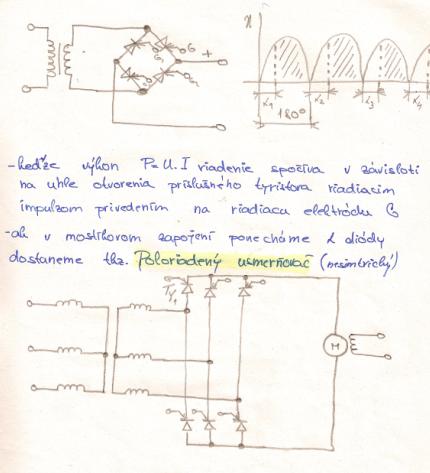 G
G
G
G
+
x
α1
α2
α3
α4
180°
-keďže výkon P=U.I riadenie spočíva v závisloti
na uhle otvorenia príslušného tyristora riadiacim
impulzom privedením na riadiacu elektródu G
-ak v mostíkovom zapojení ponecháme 2 diódy
dostaneme tkz. Poloriadený usmerňovač (nesimtrický)
Ty1
M